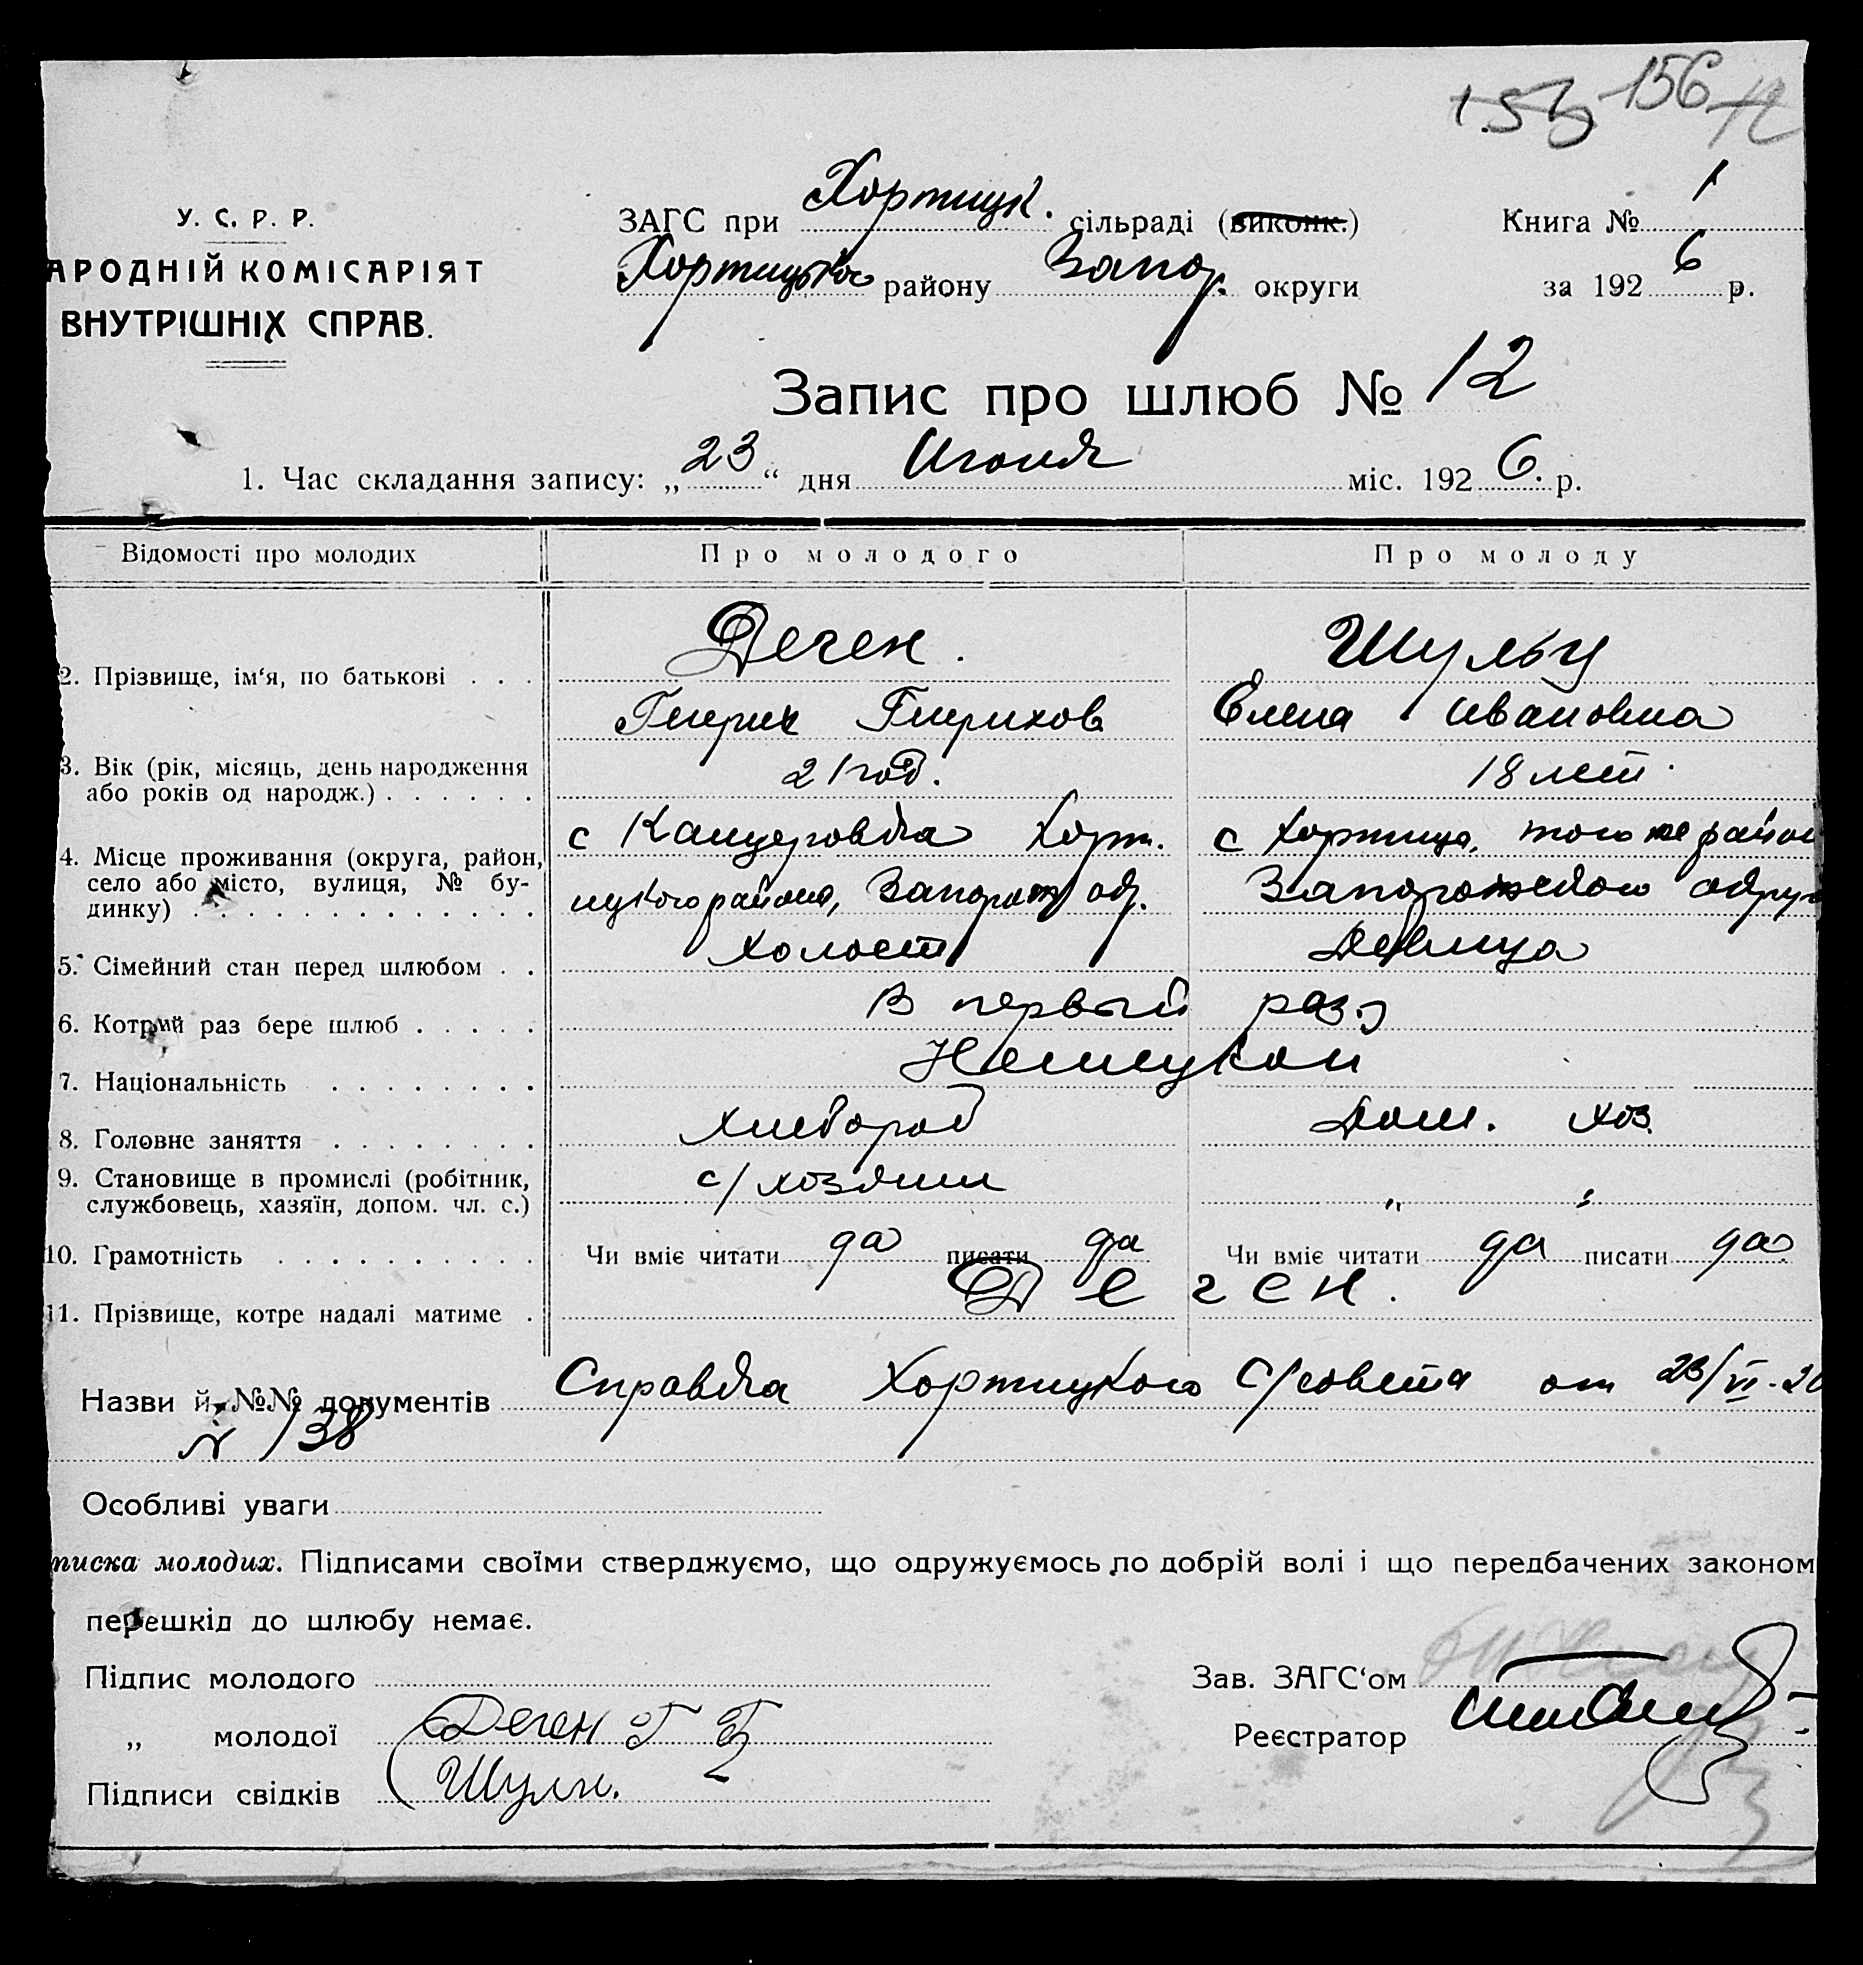 156
У. С. Р. Р.
АРОДНІЙ КОМІСАРІЯТ
ВНУТРІШНІХ СПРАВ.
ЗАГС при Хортицк. сільраді (виконк.)
Хортицкого району Запор. округи
Книга № 1
за 1926 р.
Запис про шлюб № 12
1. Час складання запису: „23“ дня Июня міс. 1926. р.
Відомості про молодих Про молодого Про молоду
2. Прізвище, ім‘я, по батькові . . . Деген. Шульц
Генрих Генрихов Елена Ивановна
3. Вік (рік, місяць, день народження або років од народж.) . . . . . . 21 год. 18 лет.
4. Місце проживання (округа, район, село або місто, вулиця, № будинку) . . . . . . . . . . . . .
с Канцеровка Хорт. с Хортица, того же район
ицкого района, Запорож окр. Запорожского округ
5. Сімейний стан перед шлюбом . . холост Девица
6. Котрий раз бере шлюб . . . . . В первый раз.
7. Національність . . . . . . . . Немецкой
8. Головне заняття . . . . . . . . хлебороб Дом. хоз.
9. Становище в промислі (робітник, службовець, хазяїн, допом. чл. с.) с/хозяин „ „
10. Грамотність . . . . . . . . . . Чи вміє читати да писати да Чи вміє читати да писати да
11. Прізвище, котре надалі матиме . Деген.
Назви й №№ документів Справка Хортицкого С/совета от 23/VI-26
№ 138
Особливі уваги
писка молодих. Підписами своїми стверджуємо, що одружуємось по добрій волі і що передбачених законом
перешкід до шлюбу немає.
Підпис молодого
„ молодої Деген Г Г
Підписи свідків Шулц.
Зав. ЗАГС‘ом
Реєстратор